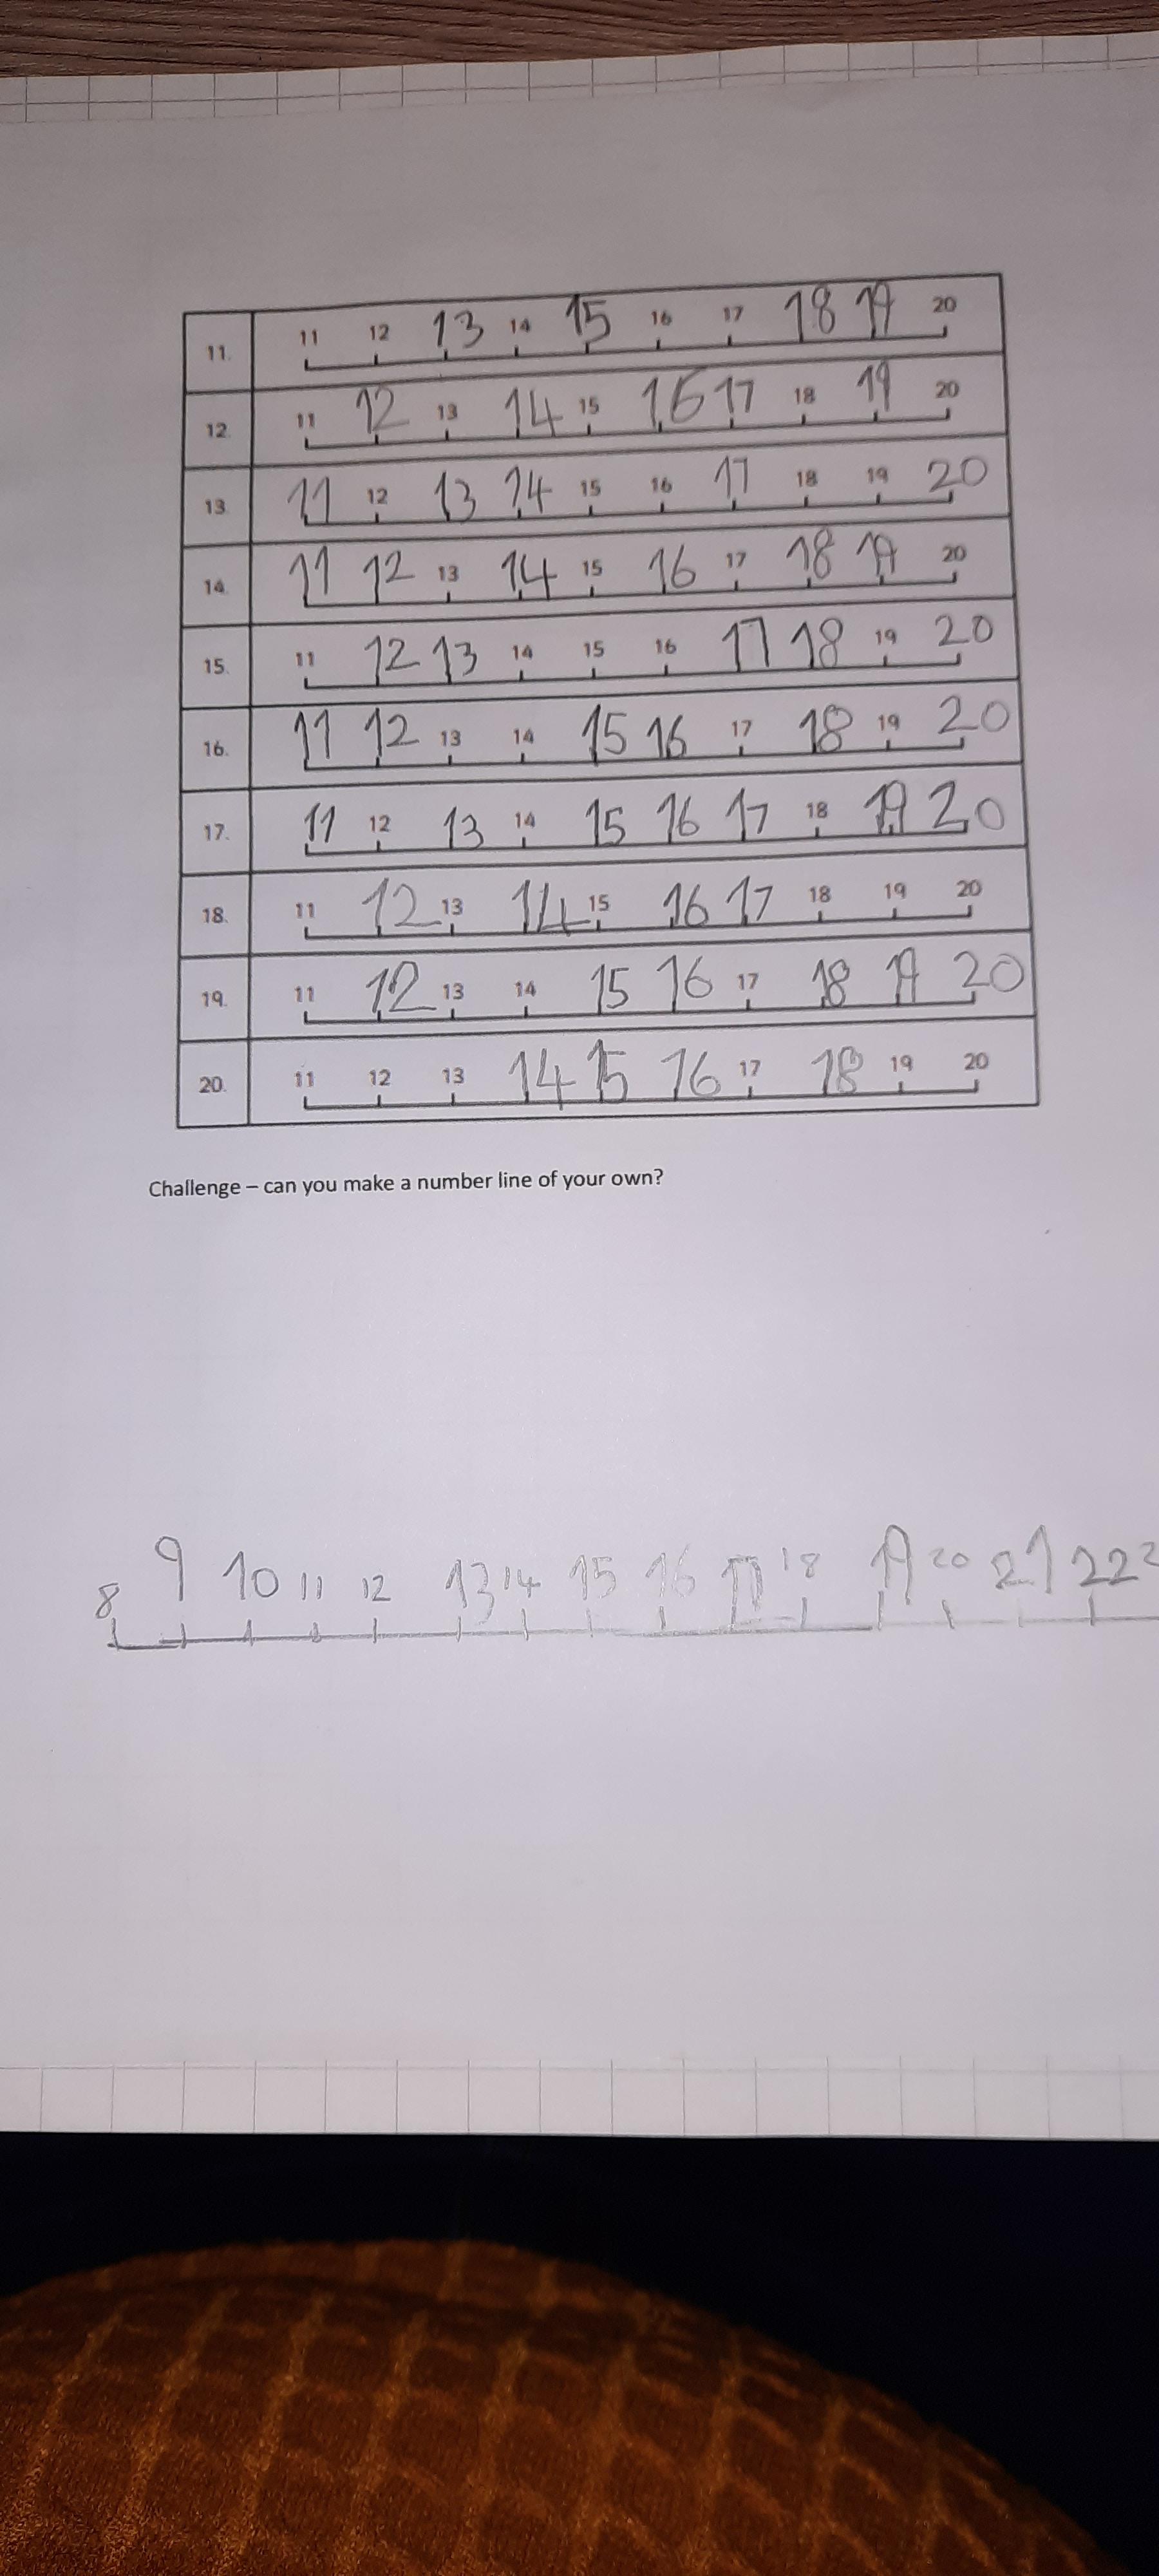 11. 11 12 13 14 15 16 17 18 19 20
12. 11 12 13 14 15 16 17 18 19 20
13. 11 12 13 14 15 16 17 18 19 20
14. 11 12 13 14 15 16 17 18 19 20
15. 11 12 13 14 15 16 17 18 19 20
16. 11 12 13 14 15 16 17 18 19 20
17. 11 12 13 14 15 16 17 18 19 20
18. 11 12 13 14 15 16 17 18 19 20
19. 11 12 13 14 15 16 17 18 19 20
20. 11 12 13 14 15 16 17 18 19 20
Challenge – can you make a number line of your own?
8 9 10 11 12 13 14 15 16 17 18 19 20 21 22